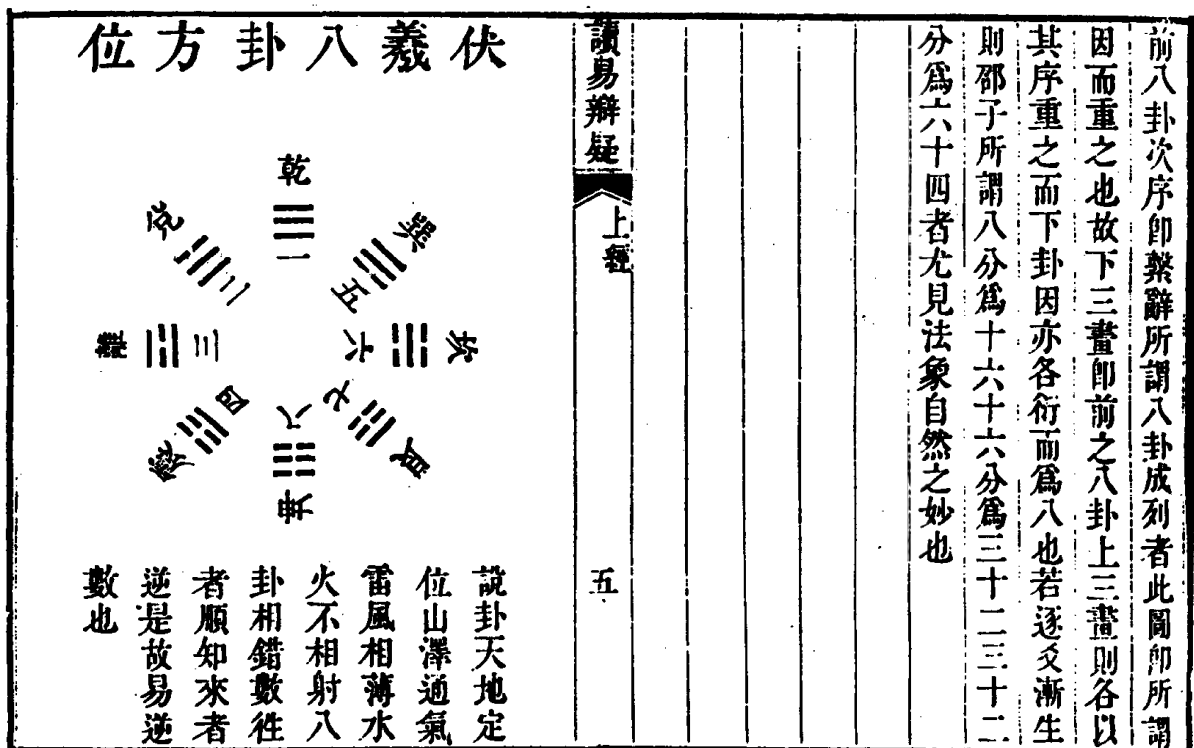 前八卦次序卽繫辭所謂八卦成列者此圖卽所謂
因而重之也故下三畫卽前之八卦上三畫則各以
其序重之而下卦因亦各衍而爲八也若逐爻漸生
則邵子所謂八分爲十六十六分爲三十二三十二
分爲六十四者尤見法象自然之妙也
讀易辯疑
上經
五
伏羲八卦方位
乾一
兌二
離三
震四
巽五
坎六
艮七
坤八
說卦天地定
位山澤通氣
雷風相薄水
火不相射八
卦相錯數徃
者順知來者
逆是故易逆
數也